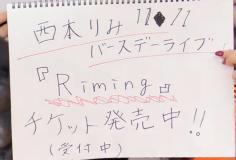 西本りみ 11◆11
バースデーライブ
『Riming』
チケット発売中!!
(受付中)